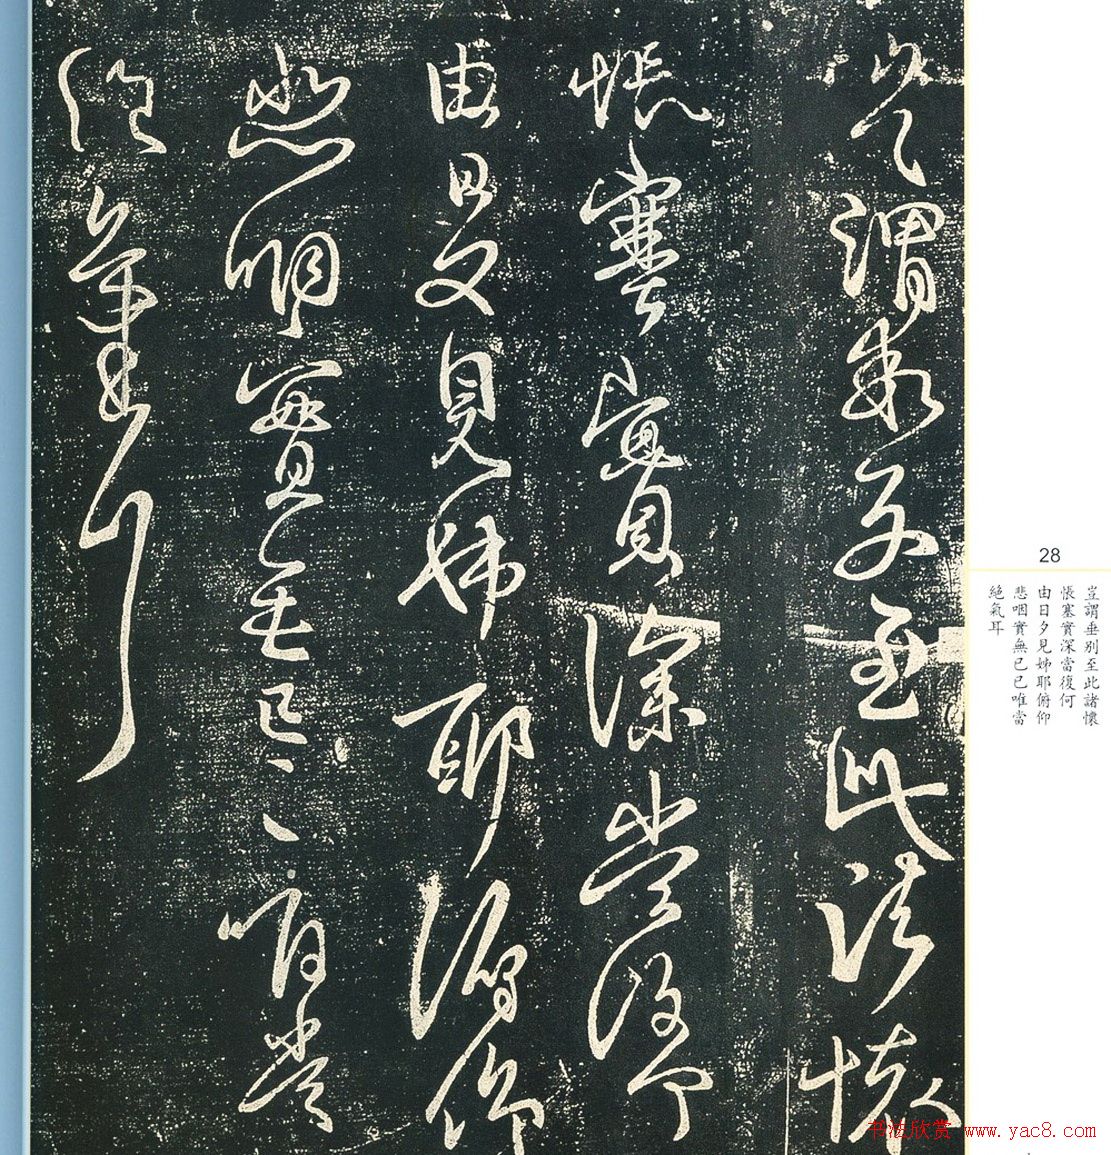 豈謂乖別至此諸懷
悵塞實深當復何
由日夕見姊耶俯仰
悲咽實無已已唯當
絶氣耳
28
豈謂垂別至此諸懷
悵塞實深當復何
由日夕見姊耶俯仰
悲咽實無已已唯當
絶氣耳
书法欣赏 www.yac8.com